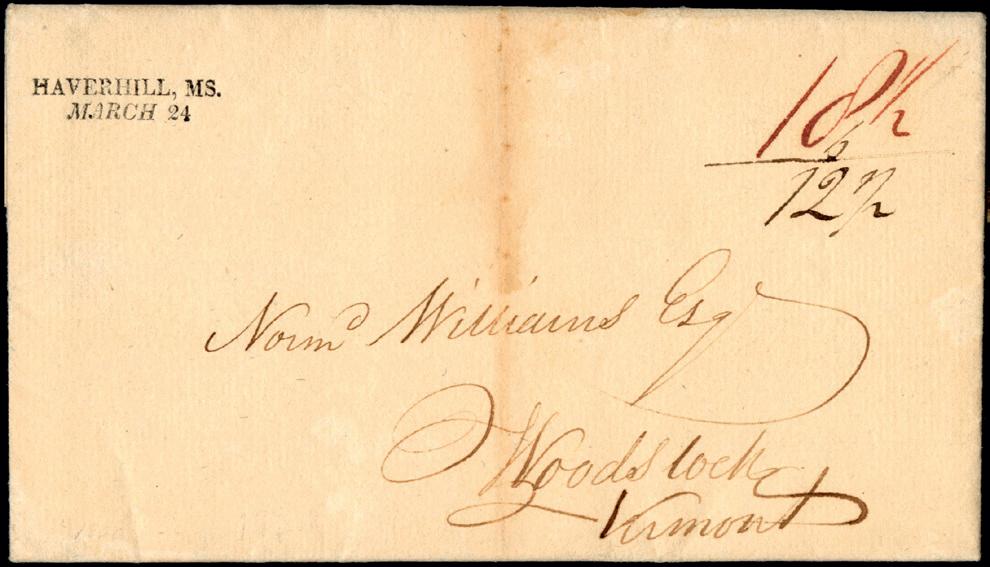 HAVERHILL, MS.
MARCH 24
18 1/2
6
12 1/2
Normd Williams Esq
Woodstock
Vermont